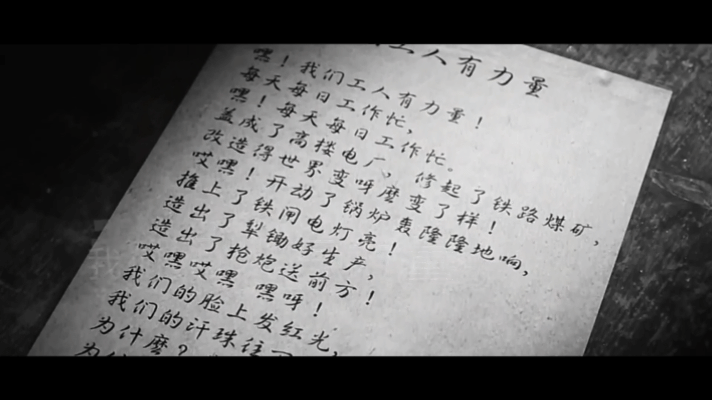 工人有力量
嘿！我们工人有力量！
每天每日工作忙，
嘿！每天每日工作忙。
盖成了高楼电厂，修起了铁路煤矿，
改造得世界变呀麽变了样！
哎嘿！开动了锅炉轰隆隆地响，
推上了铁闸电灯亮！
造出了犁锄好生产，
造出了抢炮送前方！
哎嘿哎嘿 嘿呀！
我们的脸上发红光，
我们的汗珠往下
为什麽？
为什